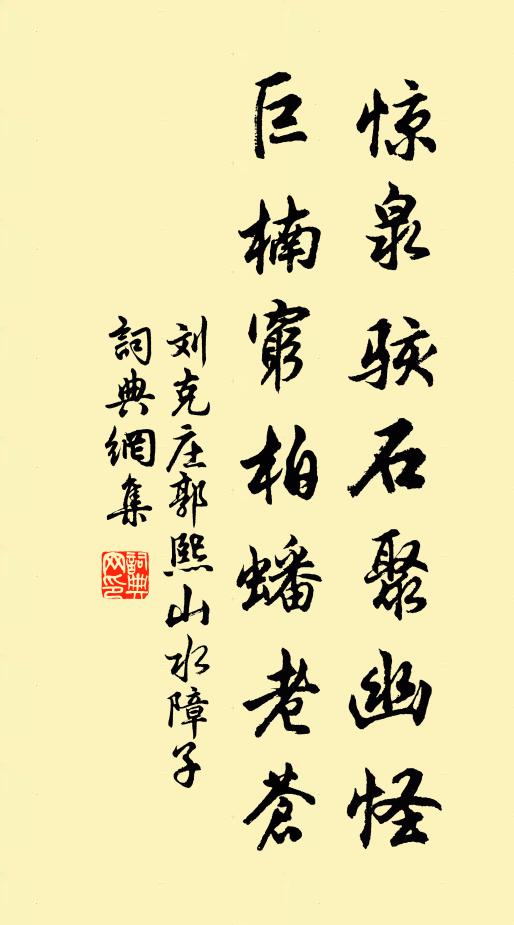 惊泉骇石聚幽怪
巨楠窮柏蟠老蒼
刘克庄郭熙山水障子
詞典網集
詞典网印